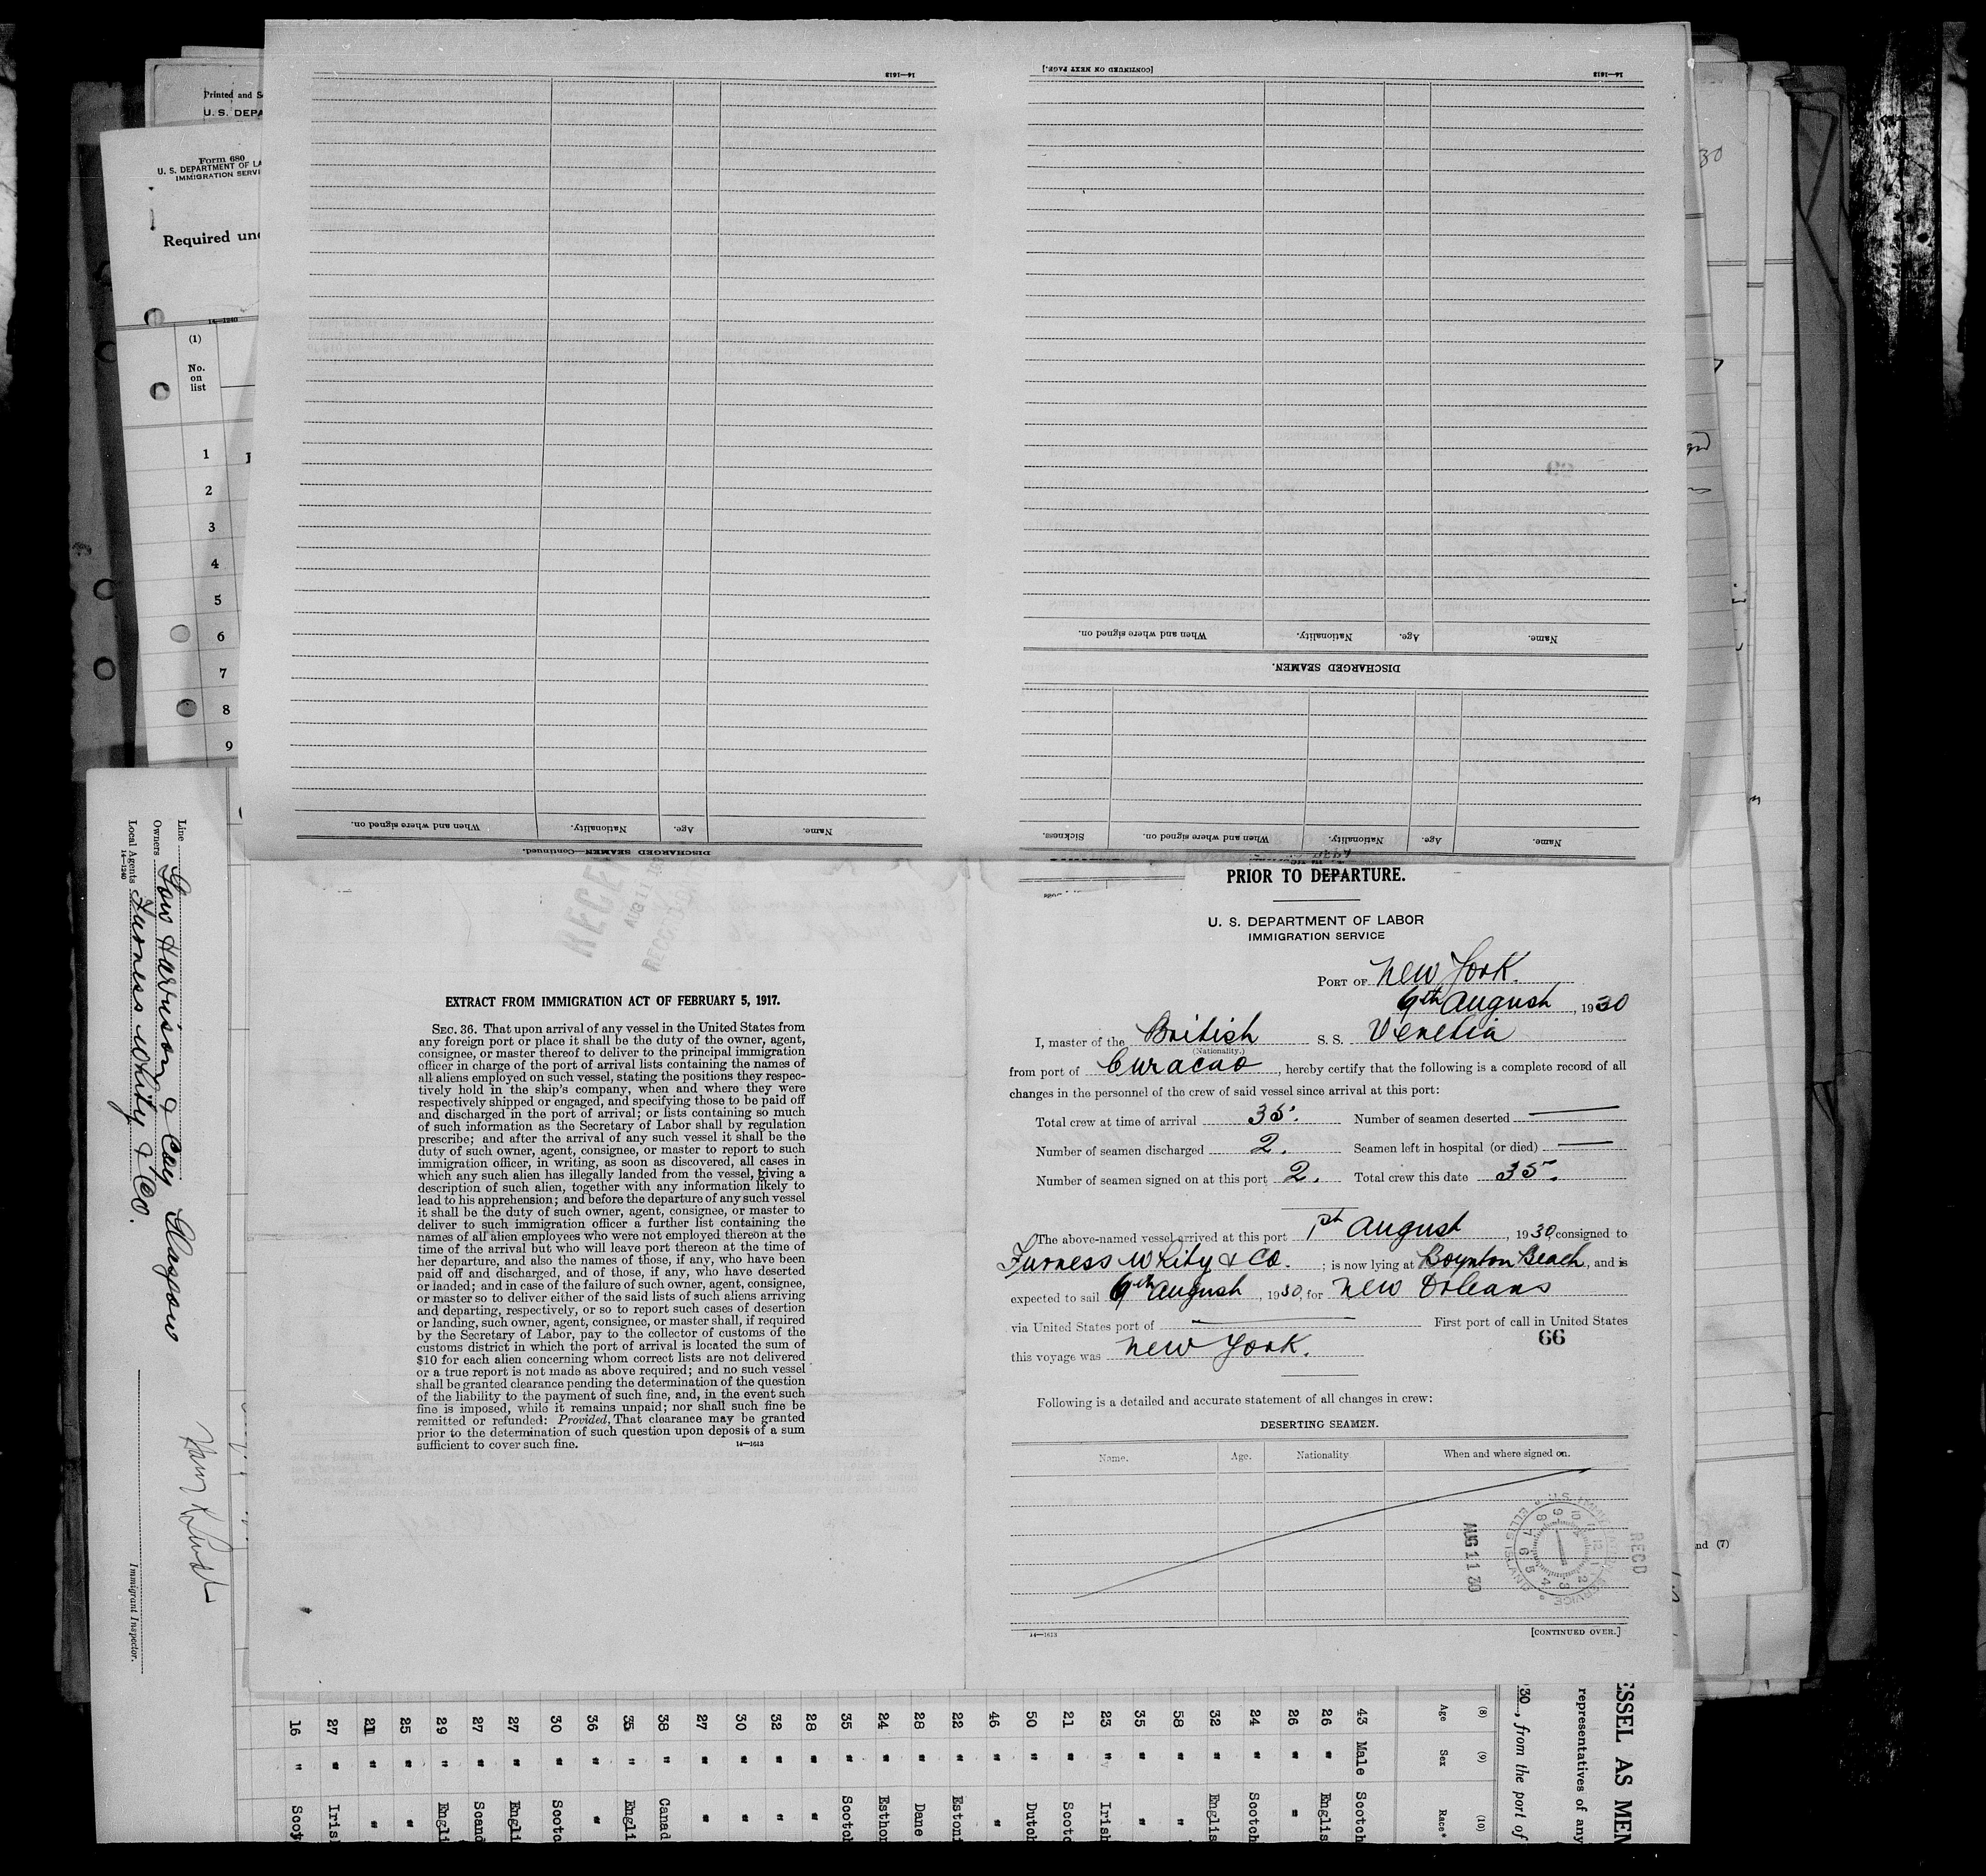 Printed and S
U. S. DEPA
Form 680
U. S. DEPARTMENT OF LA
IMMIGRATION SERVI
Required und
14—1240
(1)
No.
on
list
1
2
3
4
5
6
7
8
9
14—1613
[CONTINUED ON NEXT PAGE.]
14—1613
When and where signed on.
Nationality.
Age.
Name.
DISCHARGED SEAMEN.
Sickness.
When and where signed on.
Nationality.
Age.
Name.
When and where signed on.
Nationality.
Age.
Name.
DISCHARGED SEAMEN—Continued.
Line
Owners Gow Harrison & Coy Glasgow
Local Agents Furness Whity & Co.
14—1240
Immigrant Inspector.
AUG 11
EXTRACT FROM IMMIGRATION ACT OF FEBRUARY 5, 1917.
SEC. 36. That upon arrival of any vessel in the United States from
any foreign port or place it shall be the duty of the owner, agent,
consignee, or master thereof to deliver to the principal immigration
officer in charge of the port of arrival lists containing the names of
all aliens employed on such vessel, stating the positions they respec-
tively hold in the ship's company, when and where they were
respectively shipped or engaged, and specifying those to be paid off
and discharged in the port of arrival; or lists containing so much
of such information as the Secretary of Labor shall by regulation
prescribe; and after the arrival of any such vessel it shall be the
duty of such owner, agent, consignee, or master to report to such
immigration officer, in writing, as soon as discovered, all cases in
which any such alien has illegally landed from the vessel, giving a
description of such alien, together with any information likely to
lead to his apprehension; and before the departure of any such vessel
it shall be the duty of such owner, agent, consignee, or master to
deliver to such immigration officer a further list containing the
names of all alien employees who were not employed thereon at the
time of the arrival but who will leave port thereon at the time of
her departure, and also the names of those, if any, who have been
paid off and discharged, and of those, if any, who have deserted
or landed; and in case of the failure of such owner, agent, consignee,
or master so to deliver either of the said lists of such aliens arriving
and departing, respectively, or so to report such cases of desertion
or landing, such owner, agent, consignee, or master shall, if required
by the Secretary of Labor, pay to the collector of customs of the
customs district in which the port of arrival is located the sum of
$10 for each alien concerning whom correct lists are not delivered
or a true report is not made as above required; and no such vessel
shall be granted clearance pending the determination of the question
of the liability to the payment of such fine, and, in the event such
fine is imposed, while it remains unpaid; nor shall such fine be
remitted or refunded: Provided, That clearance may be granted
prior to the determination of such question upon deposit of a sum
sufficient to cover such fine.
14—1613
PRIOR TO DEPARTURE.
U. S. DEPARTMENT OF LABOR
IMMIGRATION SERVICE
PORT OF New York.
9th August, 1930
I, master of the British S. S. Venetia
(Nationality.)
from port of Curacao, hereby certify that the following is a complete record of all
changes in the personnel of the crew of said vessel since arrival at this port:
Total crew at time of arrival 35. Number of seamen deserted —
Number of seamen discharged 2. Seamen left in hospital (or died) —
Number of seamen signed on at this port 2. Total crew this date 35.
The above-named vessel arrived at this port 1st August, 1930, consigned to
Furness Whity & Co. ; is now lying at Boynton Beach, and is
expected to sail 9th August, 1930, for New Orleans
via United States port of — First port of call in United States
66
this voyage was New York.
Following is a detailed and accurate statement of all changes in crew:
DESERTING SEAMEN.
Name. Age. Nationality When and where signed on.
AUG 11 30
RECD
14—1613
[CONTINUED OVER.]
nd (7)
ESSEL AS MEN
representatives of any
30, from the port of
(8) (9) (10)
Age Sex Race*
43 Male Scotch
26 " Englis
26 " "
24 " Scotch
32 " Englis
58 " "
35 " "
23 " Irish
21 " Scotc
50 " Dutch
46 " "
22 " Estoni
28 " Dane
24 " Esthon
35 " Scotch
28 " "
32 " "
30 " "
27 " "
38 " Canad
35 " Engli
36 " "
30 " Scotc
27 " Engli
27 " Scand
29 " Engli
25 " "
21 " "
27 " Iris
16 " Scot